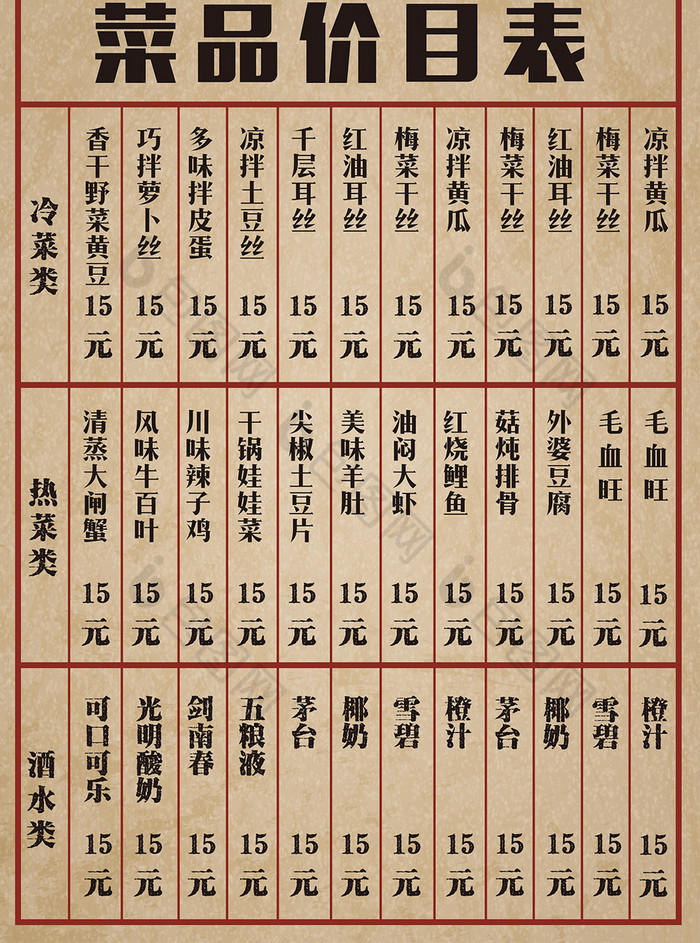 菜品价目表
冷菜类
香干野菜黄豆 15元
巧拌萝卜丝 15元
多味拌皮蛋 15元
凉拌土豆丝 15元
千层耳丝 15元
红油耳丝 15元
梅菜干丝 15元
凉拌黄瓜 15元
梅菜干丝 15元
红油耳丝 15元
梅菜干丝 15元
凉拌黄瓜 15元
热菜类
清蒸大闸蟹 15元
风味牛百叶 15元
川味辣子鸡 15元
干锅娃娃菜 15元
尖椒土豆片 15元
美味羊肚 15元
油闷大虾 15元
红烧鲤鱼 15元
菇炖排骨 15元
外婆豆腐 15元
毛血旺 15元
毛血旺 15元
酒水类
可口可乐 15元
光明酸奶 15元
剑南春 15元
五粮液 15元
茅台 15元
椰奶 15元
雪碧 15元
橙汁 15元
茅台 15元
椰奶 15元
雪碧 15元
橙汁 15元